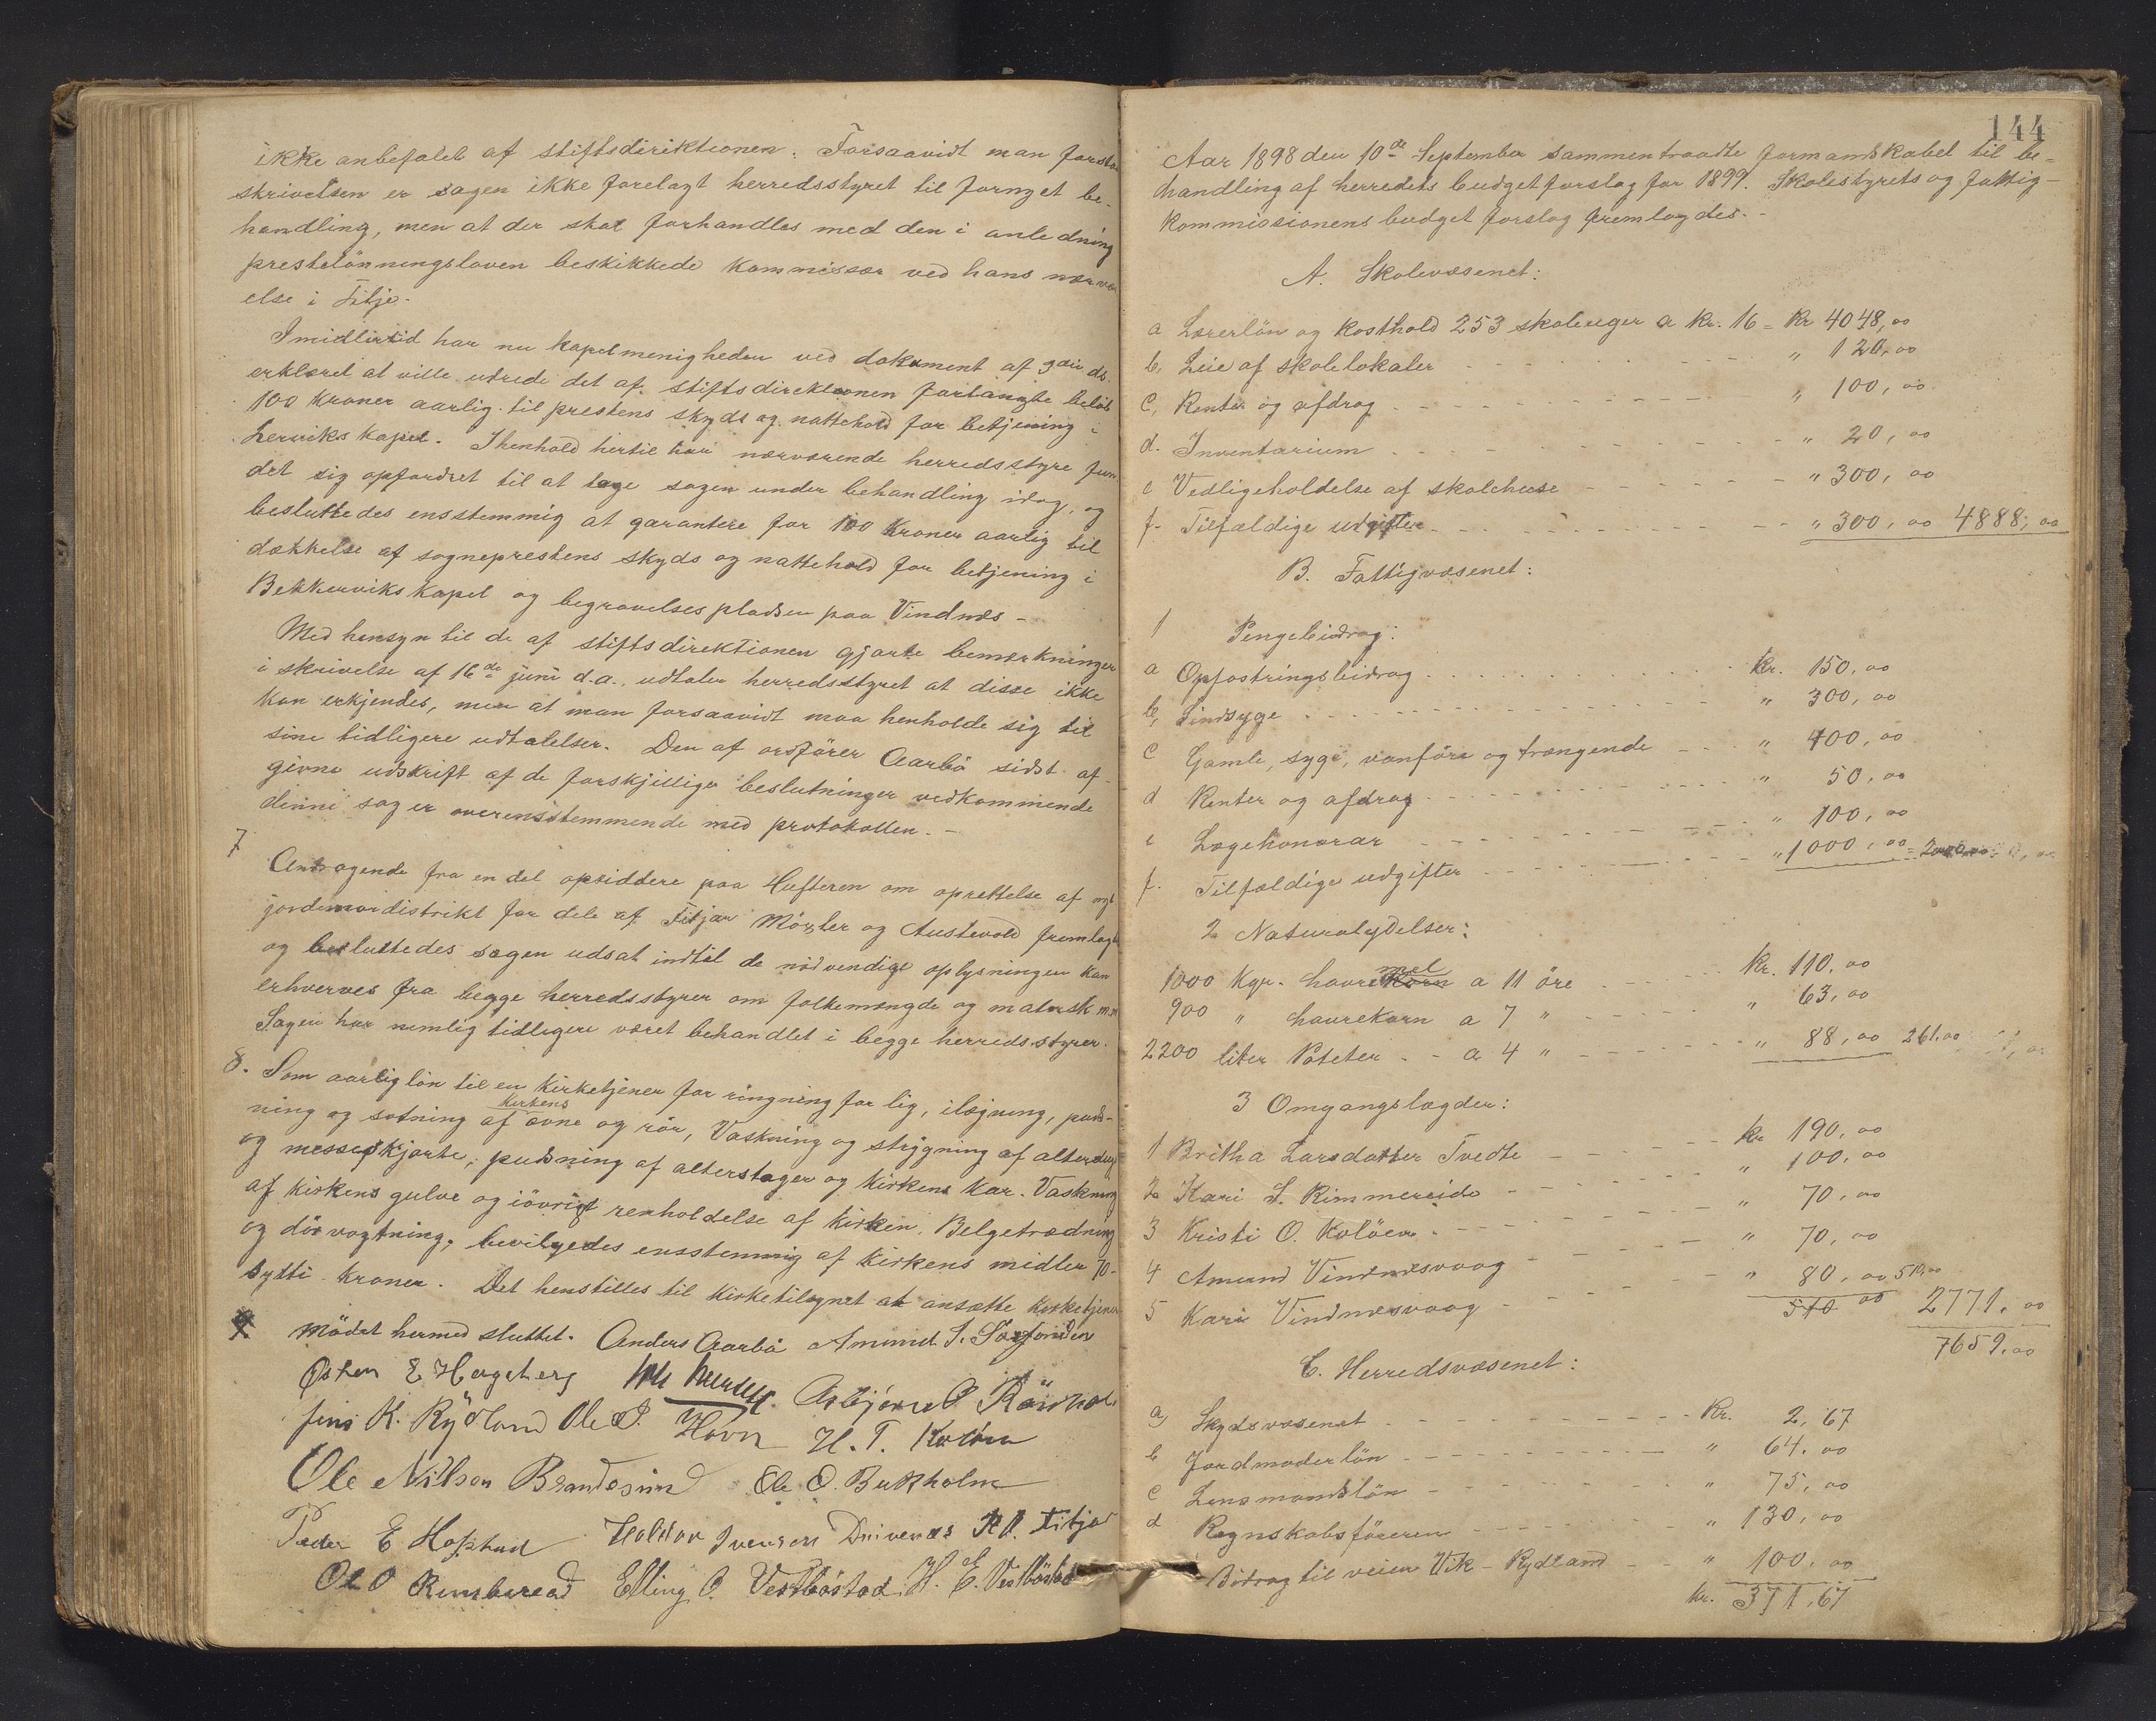 ikke anbefalet af stiftsdirektionen. Forsaavidt man forstaar
skrivelsen er sagen ikke forelagt herredsstyret til fornyet be-
handling, men at der skal forhandles med den i anledning
prestelønningsloven beskikkede kommissær ved hans nærvær
else i Fitje.
Imidlertid har nu kapelmenigheden ved dokument af 3die ds.
erklæret at ville utrede det af stiftsdirektionen forlangte beløb
100 kroner aarlig til prestens skyds og nattehold for betjening i
kapel. I henhold hertil har nærværende herredsstyre fun
det sig opfordret til at tage sagen under behandling idag, og
besluttedes ensstemmig at garantere for 100 kroner aarlig til
dækkelse af sogneprestens skyds og nattehold for betjening i
Bekkerviks kapel og begravelsespladsen paa Vindnæs -
Med hensyn til de af stiftsdirektionen gjorte bemærkninger
i skrivelse af 16de juni d.a., udtaler herredsstyret at disse ikke
kan erkjendes, men at man forsaavidt maa henholde sig til
sine tidligere udtalelser. Den af ordfører Aarbø sidst af-
givne udskrift af de forskjellige beslutninger vedkommende
denne sag er overensstemmende med protokollen. -
7
Andragende fra en del opsiddere paa Hufteren om oprettelse af nyt
jordemordistrikt for dele af Fitjar Møgster og Austevold fremlagdes
og besluttedes sagen udsat indtil de nødvendige oplysninger kan
erhverves fra begge herredsstyrer om folkemængde og matrsk m.m
Sagen har nemlig tidligere været behandlet i begge herredsstyrer.
8. Som aarlig løn til en kirketjener for ringning for lig, ilægning, puds-
kirkens
ning og sotning af ovne og rør, Vaskning og strygning af alterdug
og messeskjorte, pudsning af alterstager og kirkens kar. Vaskning
af kirkens gulve og iøvrigt renholdelse af kirken, Belgetrædning
og dørvogtning, bevilgedes ensstemmig af kirkens midler 70-
sytti kroner. Det henstilles til kirketilsynet at ansætte kirketjener
9 Mødet hermed sluttet. Anders Aarbø Amund J.
Østen E Hageberg Asbjørn O.
Jens K. Rydland Ole J. Havn H. T. Koløen
Ole Nilson Brandesund Ole O. Bukholm
Peder E Hopland Haldor Iversen Drivenes Fitjar
Ole O Rimbareid Elling O. Vestbøstad H. E. Vestbøstad
144
Aar 1898 den 10de September sammentraadte formandskabet til be-
handling af herredets budgetforslag for 1899. Skolestyrets og fattig-
kommissionens budgetforslag fremlagdes. -
A. Skolevæsenet:
a Lærerløn og kosthold 253 skoleuger a kr. 16 = Kr 4048,00
b, Leie af skolelokaler " 120,00
c, Renter og afdrag " 100,00
d. Inventarium " 20,00
e Vedligeholdelse af skolehuse " 300,00
f. Tilfældige udgifter " 300,00 4888,00
B. Fattigvæsenet:
1 Pengebidrag:
a Opfostringsbidrag kr. 150,00
b, Sindsyge " 300,00
c Gamle, syge, vanføre og trængende " 400,00
d Renter og afdrag " 50,00
e Lægehonorar " 100,00
f. Tilfældige udgifter " 1000,00 = 2000,00
2 Naturalydelser:
mel
1000 kgr. havrekorn a 11 øre Kr. 110,00
900 " havrekorn a 7 " " 63,00
2200 liter Poteter - - a 4 " " 88,00 261,00
3 Omgangslægder:
1 Britha Larsdatter Tvedte kr 190,00
2 Kari S. Rimmereide " 100,00
3 Kristi O. Koløen " 70,00
4 Amund Vindnæsvaag " 70,00
5 Kari Vindnæsvaag " 80,00 510,00
510 00 2771,00
7659,00
C. Herredsvæsenet:
a, Skydsvæsenet Kr. 2,67
b Jordmoderløn " 64,00
c Lensmandsløn " 75,00
d Regnskabsføreren " 130,00
Bidrag til veien Vik - Rydland " 100,00
kr. 371,67